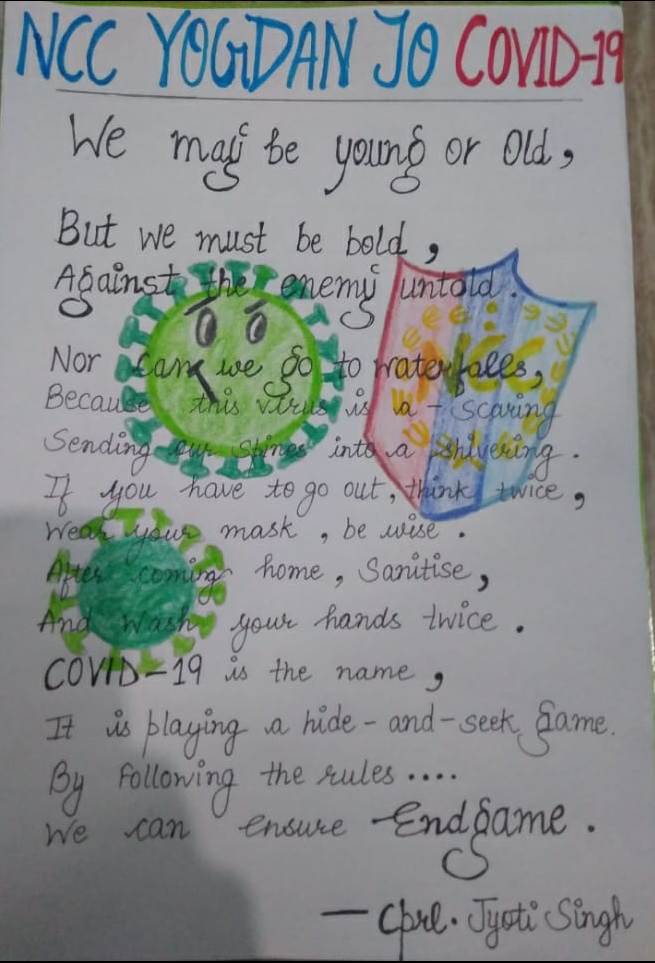 NCC YOGDAN TO COVID-19
We may be young or old,
But we must be bold,
Against the enemy untold.
Nor can we go to waterfalls,
Because this virus is a - scaring
Sending our spines into a shivering.
If you have to go out, think twice,
Wear your mask, be wise.
After coming home, Sanitise,
And Wash your hands twice.
COVID-19 is the name,
It is playing a hide-and-seek game.
By Following the rules....
We can ensure Endgame.
— Cprl. Jyoti Singh
NCC